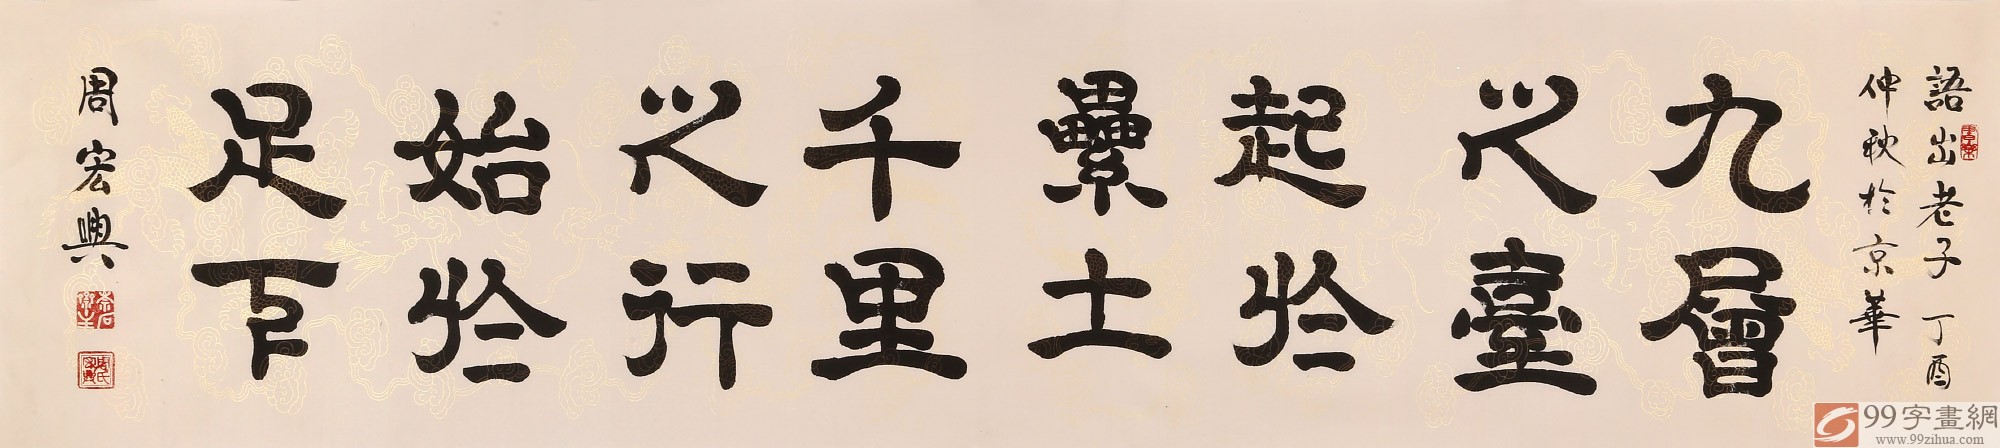 語出老子丁酉
仲秋於京華
九層
之臺
起於
纍土
千里
之行
始於
足下
周宏興
99字畫網
www.99zihua.com